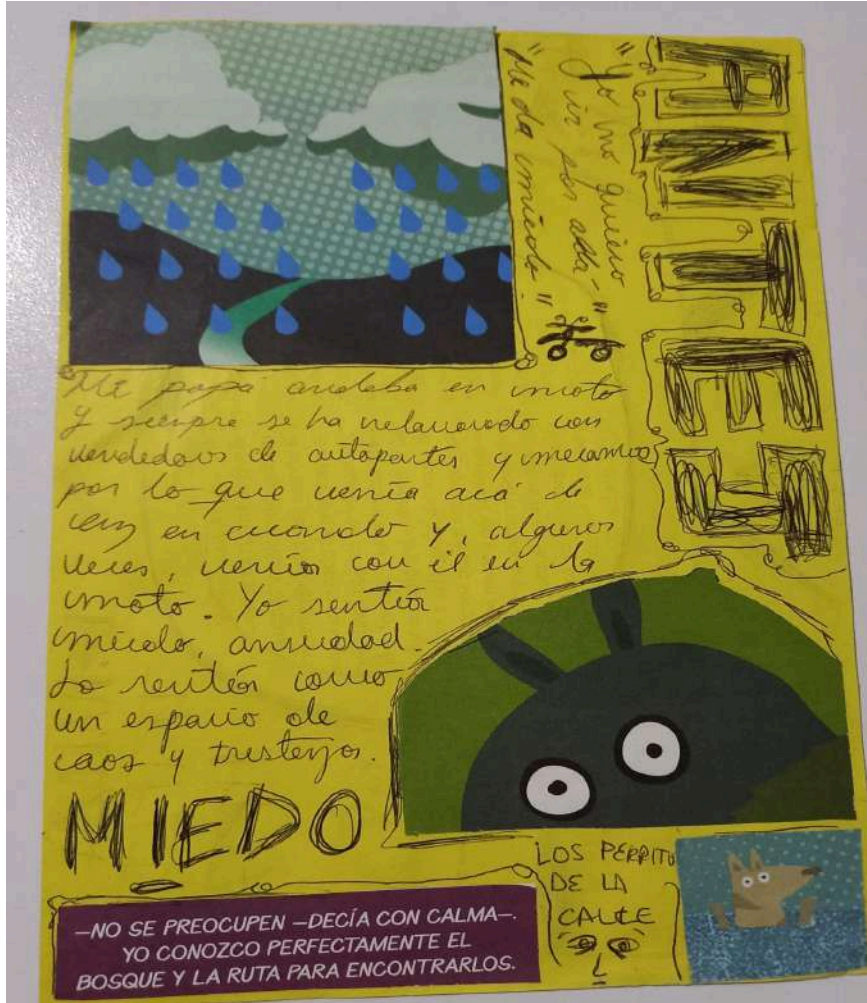 ANTES
"Yo no quiero
ir por allá-"
"Me da miedo"
Mi papá andaba en moto
y siempre se ha relacionado con
vendedores de autopartes y mecánica
por lo que venía acá de
vez en cuando y, algunas
veces, venía con él en la
moto. Yo sentía
miedo, ansiedad.
Lo sentía como
un espacio de
caos y tristeza.
MIEDO
LOS PERRITO
DE LA
CALLE
—NO SE PREOCUPEN —DECÍA CON CALMA—.
YO CONOZCO PERFECTAMENTE EL
BOSQUE Y LA RUTA PARA ENCONTRARLOS.